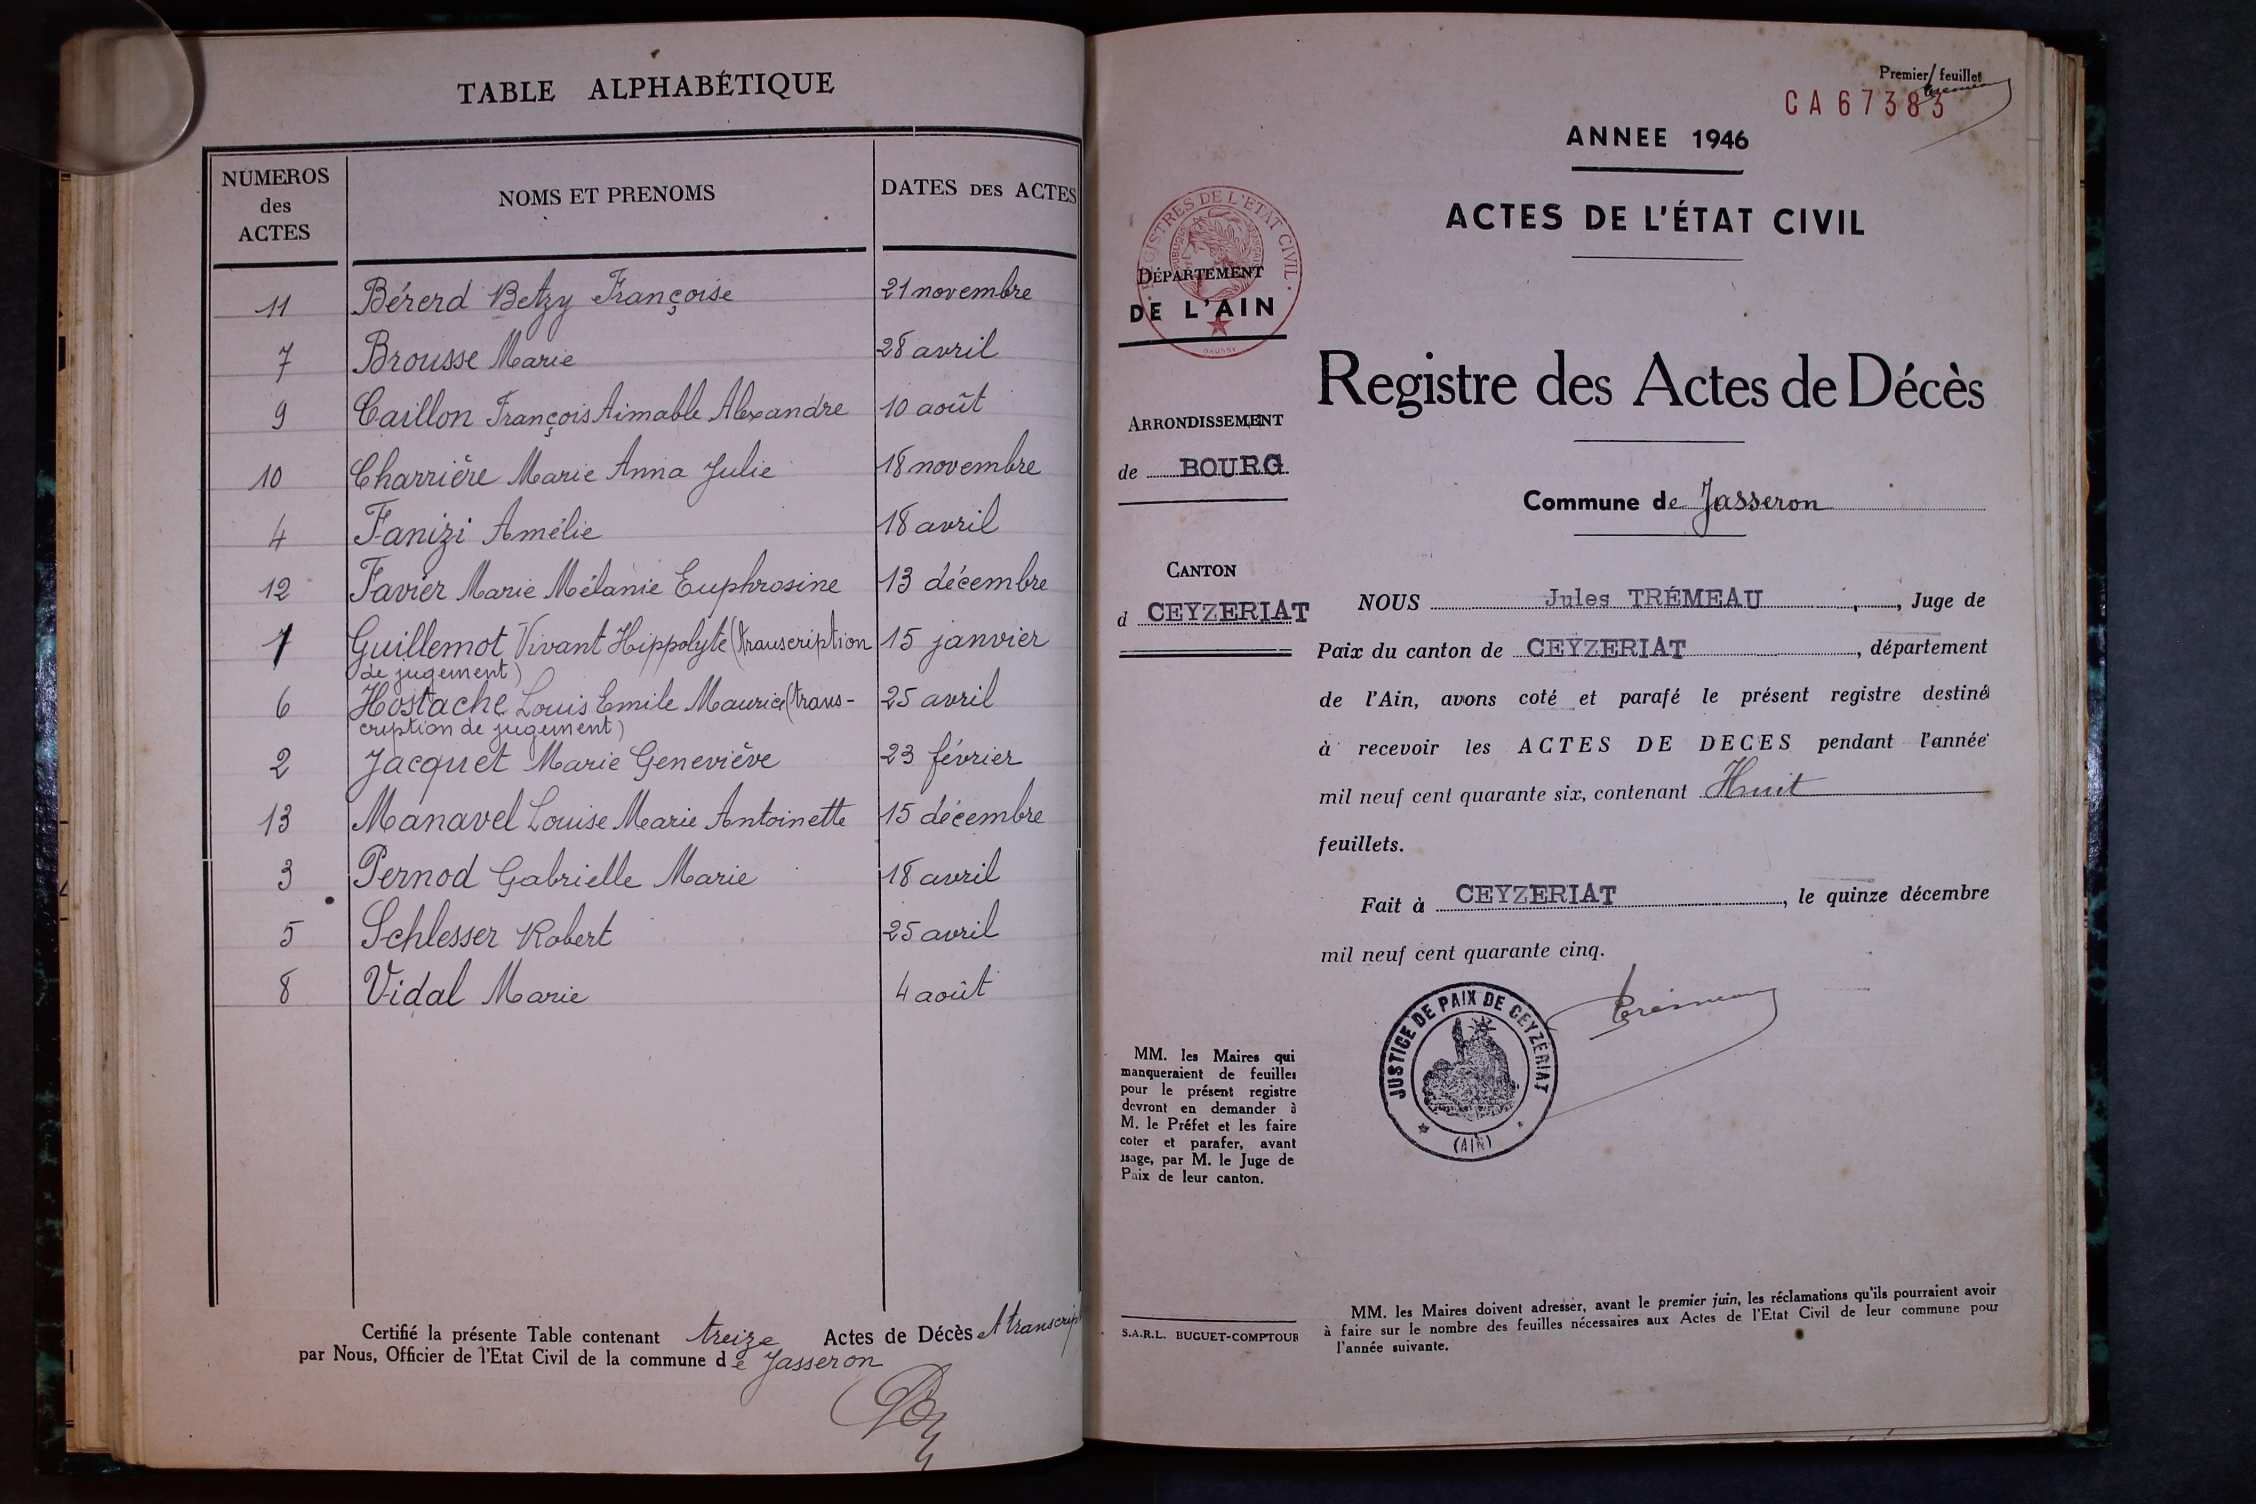 TABLE ALPHABÉTIQUE
NUMEROS des ACTES NOMS ET PRENOMS DATES DES ACTES
11 Bérerd Betzy Françoise 21 novembre
7 Brousse Marie 28 avril
9 Caillon François Aimable Alexandre 10 août
10 Charrière Marie Anna Julie 18 novembre
4 Fanizi Amélie 18 avril
12 Favier Marie Mélanie Euphrosine 13 décembre
1 Guillemot Vivant Hippolyte (transcription 15 janvier
de jugement)
6 Hostache Louis Emile Maurice (trans- 25 avril
cription de jugement)
2 Jacquet Marie Geneviève 23 février
13 Manavel Louise Marie Antoinette 15 décembre
3 Pernod Gabrielle Marie 18 avril
5 Schlesser Robert 25 avril
8 Vidal Marie 4 août
Certifié la présente Table contenant treize Actes de Décès et transcript
par Nous, Officier de l'Etat Civil de la commune de Jasseron
Premier feuillet
CA67383
ANNEE 1946
ACTES DE L'ÉTAT CIVIL
REGISTRES DE L'ETAT CIVIL
DÉPARTEMENT
DE L'AIN
Registre des Actes de Décès
ARRONDISSEMENT
de BOURG
Commune de Jasseron
CANTON
d CEYZERIAT
NOUS Jules TRÉMEAU, Juge de
Paix du canton de CEYZERIAT, département
de l'Ain, avons coté et parafé le présent registre destiné
à recevoir les ACTES DE DECES pendant l'année
mil neuf cent quarante six, contenant Huit
feuillets.
Fait à CEYZERIAT, le quinze décembre
mil neuf cent quarante cinq.
Trémeau
JUSTICE DE PAIX DE CEYZERIAT
(AIN)
MM. les Maires qui
manqueraient de feuilles
pour le présent registre
devront en demander à
M. le Préfet et les faire
coter et parafer, avant
usage, par M. le Juge de
Paix de leur canton.
S.A.R.L. BUGUET-COMPTOUR
MM. les Maires doivent adresser, avant le premier juin, les réclamations qu'ils pourraient avoir
à faire sur le nombre des feuilles nécessaires aux Actes de l'Etat Civil de leur commune pour
l'année suivante.